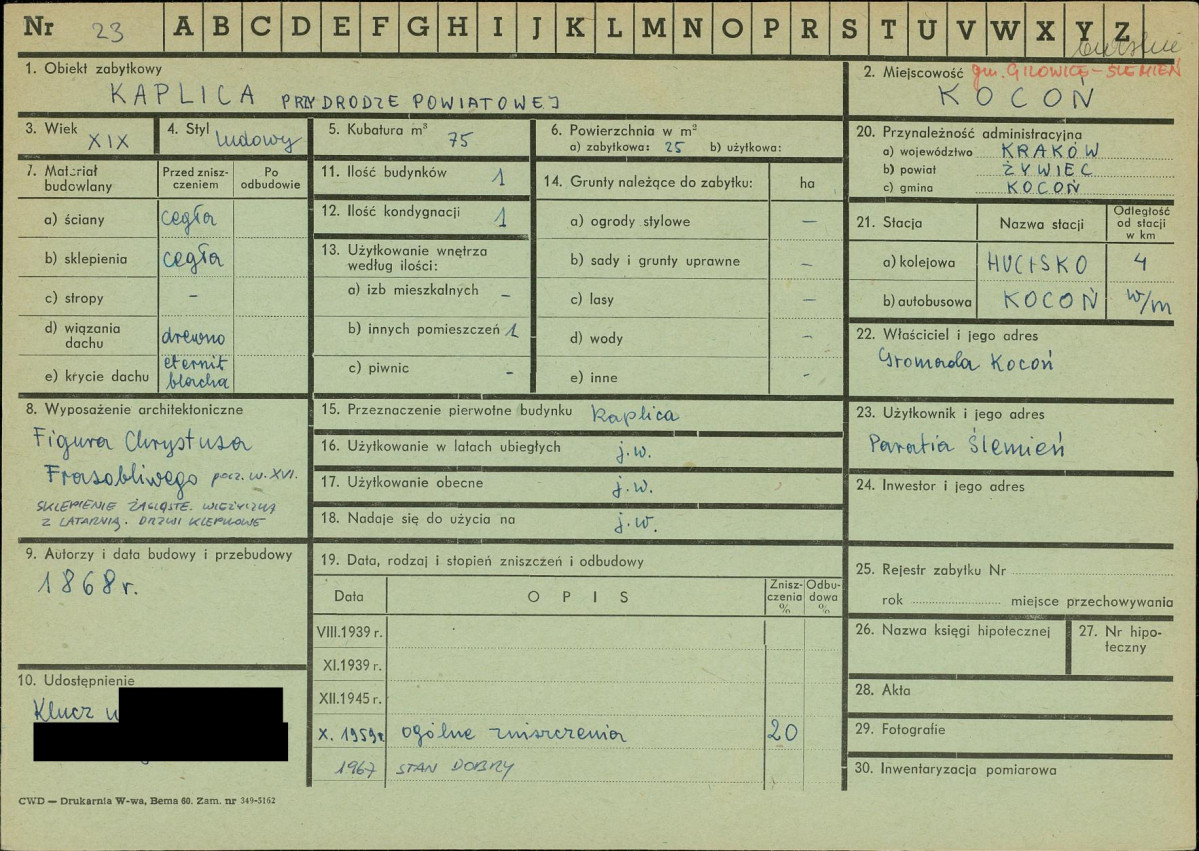 Nr 23 A B C D E F G H I J K L M N O P R S T U V W X Y Z
1. Obiekt zabytkowy
KAPLICA PRZY DRODZE POWIATOWEJ
2. Miejscowość gm. GILOWICE-ŚLEMIEŃ
KOCOŃ
3. Wiek XIX
4. Styl ludowy
5. Kubatura m³ 75
6. Powierzchnia w m²
a) zabytkowa: 25 b) użytkowa:
7. Materiał budowlany
Przed zniszczeniem
Po odbudowie
a) ściany cegła
b) sklepienia cegła
c) stropy –
d) wiązania dachu drewno
e) krycie dachu eternit blacha
8. Wyposażenie architektoniczne
Figura Chrystusa
Frasobliwego pocz. w. XVI.
SKLEPIENIE ŻAGLASTE. WIEŻYCZKA
Z LATARNIĄ. DRZWI KLEPKOWE
9. Autorzy i data budowy i przebudowy
1868 r.
10. Udostępnienie
Klucz u
11. Ilość budynków 1
12. Ilość kondygnacji 1
13. Użytkowanie wnętrza
według ilości:
a) izb mieszkalnych –
b) innych pomieszczeń 1
c) piwnic –
14. Grunty należące do zabytku: ha
a) ogrody stylowe –
b) sady i grunty uprawne –
c) lasy –
d) wody –
e) inne –
15. Przeznaczenie pierwotne budynku kaplica
16. Użytkowanie w latach ubiegłych j.w.
17. Użytkowanie obecne j.w.
18. Nadaje się do użycia na j.w.
19. Data, rodzaj i stopień zniszczeń i odbudowy
Data OPIS Zniszczenia % Odbudowa %
VIII.1939 r.
XI.1939 r.
XII.1945 r.
X. 1959 r. ogólne zniszczenia 20
1967 STAN DOBRY
20. Przynależność administracyjna
a) województwo KRAKÓW
b) powiat ŻYWIEC
c) gmina KOCOŃ
21. Stacja Nazwa stacji Odległość od stacji w km
a) kolejowa HUCISKO 4
b) autobusowa KOCOŃ w/m
22. Właściciel i jego adres
Gromada Kocoń
23. Użytkownik i jego adres
Parafia Ślemień
24. Inwestor i jego adres
25. Rejestr zabytku Nr
rok miejsce przechowywania
26. Nazwa księgi hipotecznej
27. Nr hipoteczny
28. Akta
29. Fotografie
30. Inwentaryzacja pomiarowa
CWD — Drukarnia W-wa, Bema 60. Zam. nr 349-5162